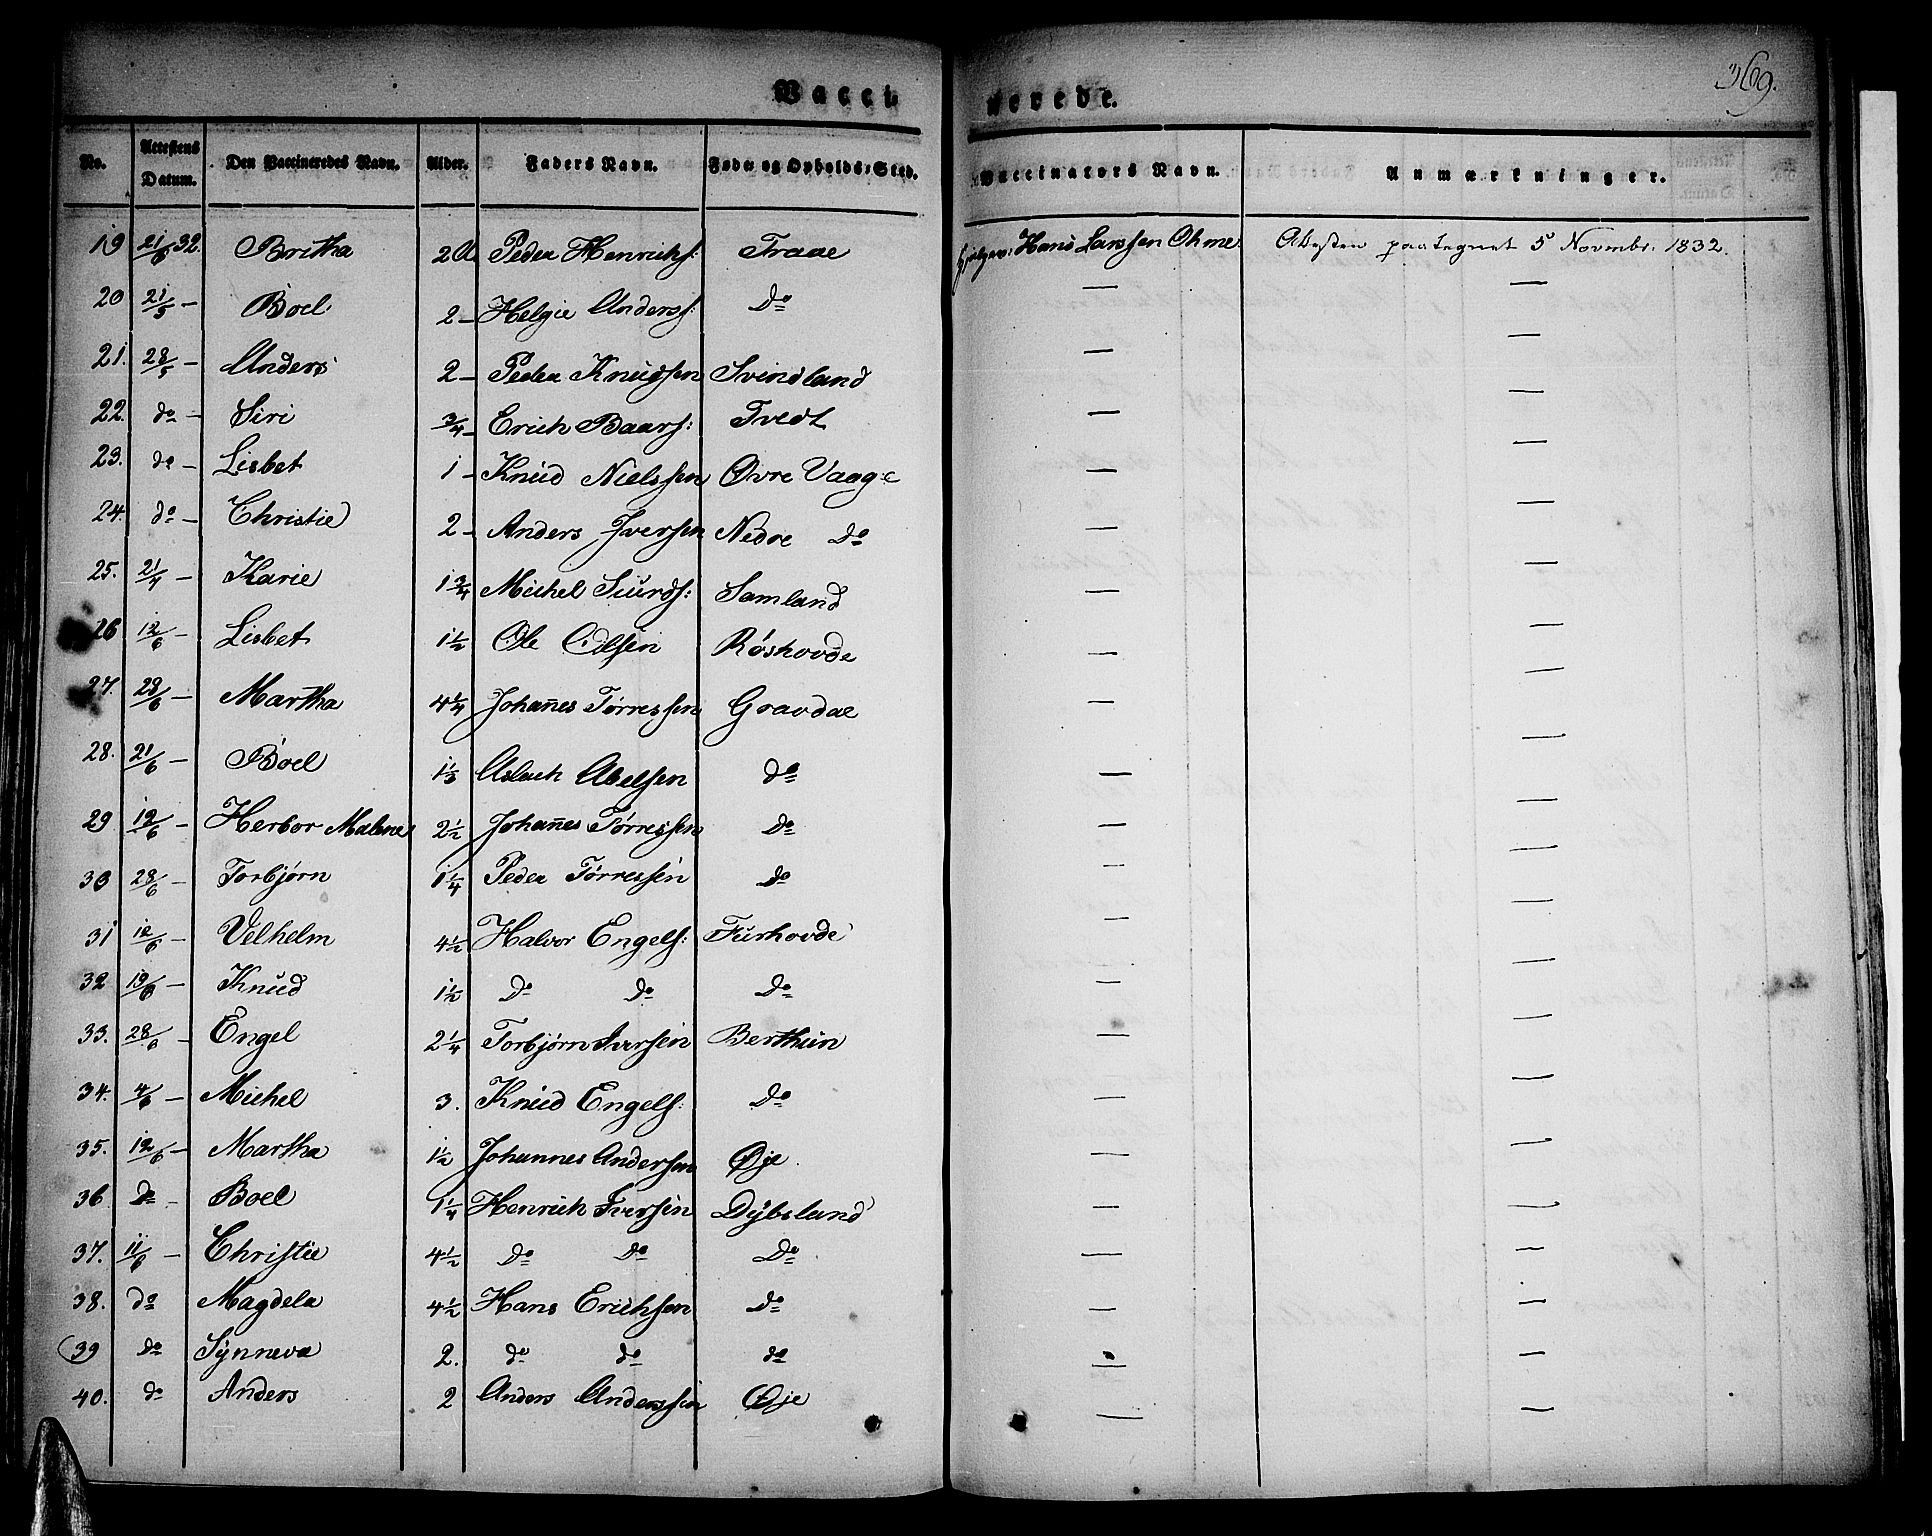 369.
Vacci nerede.
No. Attestens Datum. Den Vaccineredes Navn. Alder. Faders Navn. Føde og Opholds-Sted. Vaccinators Navn. Anmærkninger.
19 21/6 32. Britha 2 A Peder Henrichs: Traae Hans Larssen Ohme Attesten paategnet 5 Novmbr. 1832.
20 21/5 — Boel 2 — Helgie Anderss: Do — —
21. 28/5 — Anders 2 — Peder Knudsen Svindland — —
22. do — Siri 3/4 — Erich Baars: Tvedt — —
23. do — Lisbet 1 — Knud Nielssen Øvre Vaage — —
24. do — Christie 2 — Anders Iversen Nedre Do — —
25. 21/4 — Karie 1 3/4 Michel Siurds: Samland — —
26 12/6 — Lisbet 1 1/2 Ole Olsen Røshovde — —
27. 28/6 — Martha 4 1/4 Johañes Tørressen Gravdae — —
28. 21/6 — Boel 1 1/3 Aslach Abelsen do — —
29 12/6 — Herbor Malene 2 1/2 Johañes Tørressen Do — —
30 28/6 — Torbjørn 1 1/4 Peder Tørressen Do — —
31 12/6 — Velhelm 4 1/2 Halvor Engels: Furhovde — —
32 19/6 — Knud 1 1/2 Do Do Do — —
33. 28/6 — Engel 2 1/4 Torbjørn Iversen Berthun — —
34. 4/6 — Michel 3. Knud Engels: Do — —
35. 12/6 — Martha 1 1/2 Johannes Andersen Øje — —
36 Do — Boel 1 1/4 Henrich Iversen Dybsland — —
37. 11/6 — Christie 4 1/2 Do Do Do — —
38. do Magdela 4 1/2 Hans Erichsen Do — —
39 do Synneva 2. do do do — —
40. do Anders 2 Anders Anderssen Øje — —